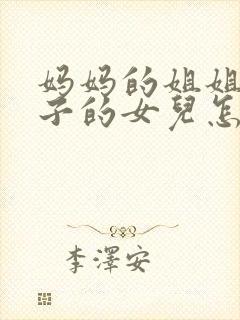 妈妈的姐姐
子的女兒怎
李澤安